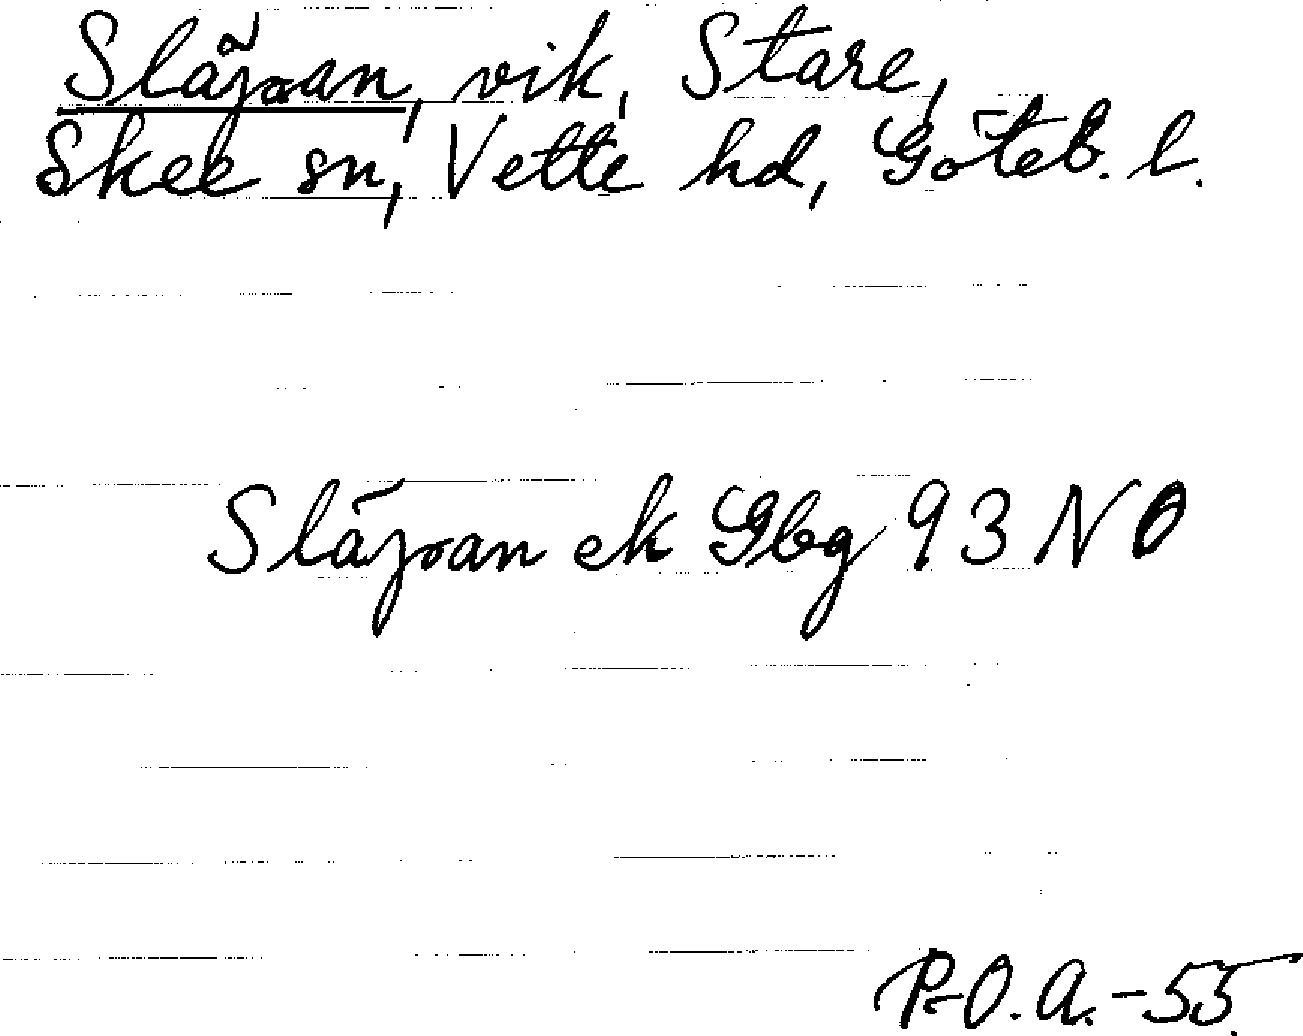 Släpan, vik, Stare,
Skee sn, Vette hd, Göteb. l.
Släpan ek Gbg 93 NO
P-O.A.-55